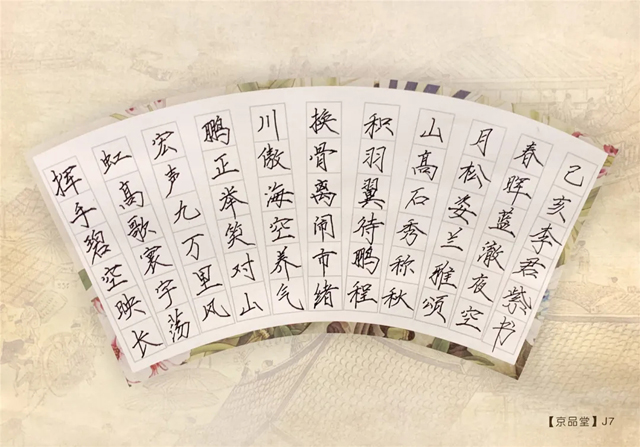 挥手碧空映长
虹高歌寰宇荡
宏声九万里风
鹏正举笑对山
川傲海空养气
换骨离闹市绪
积羽翼待鹏程
山高石秀称秋
月松姿兰雅颂
春晖蓝澈夜空
己亥李君紫书
【京品堂】J7